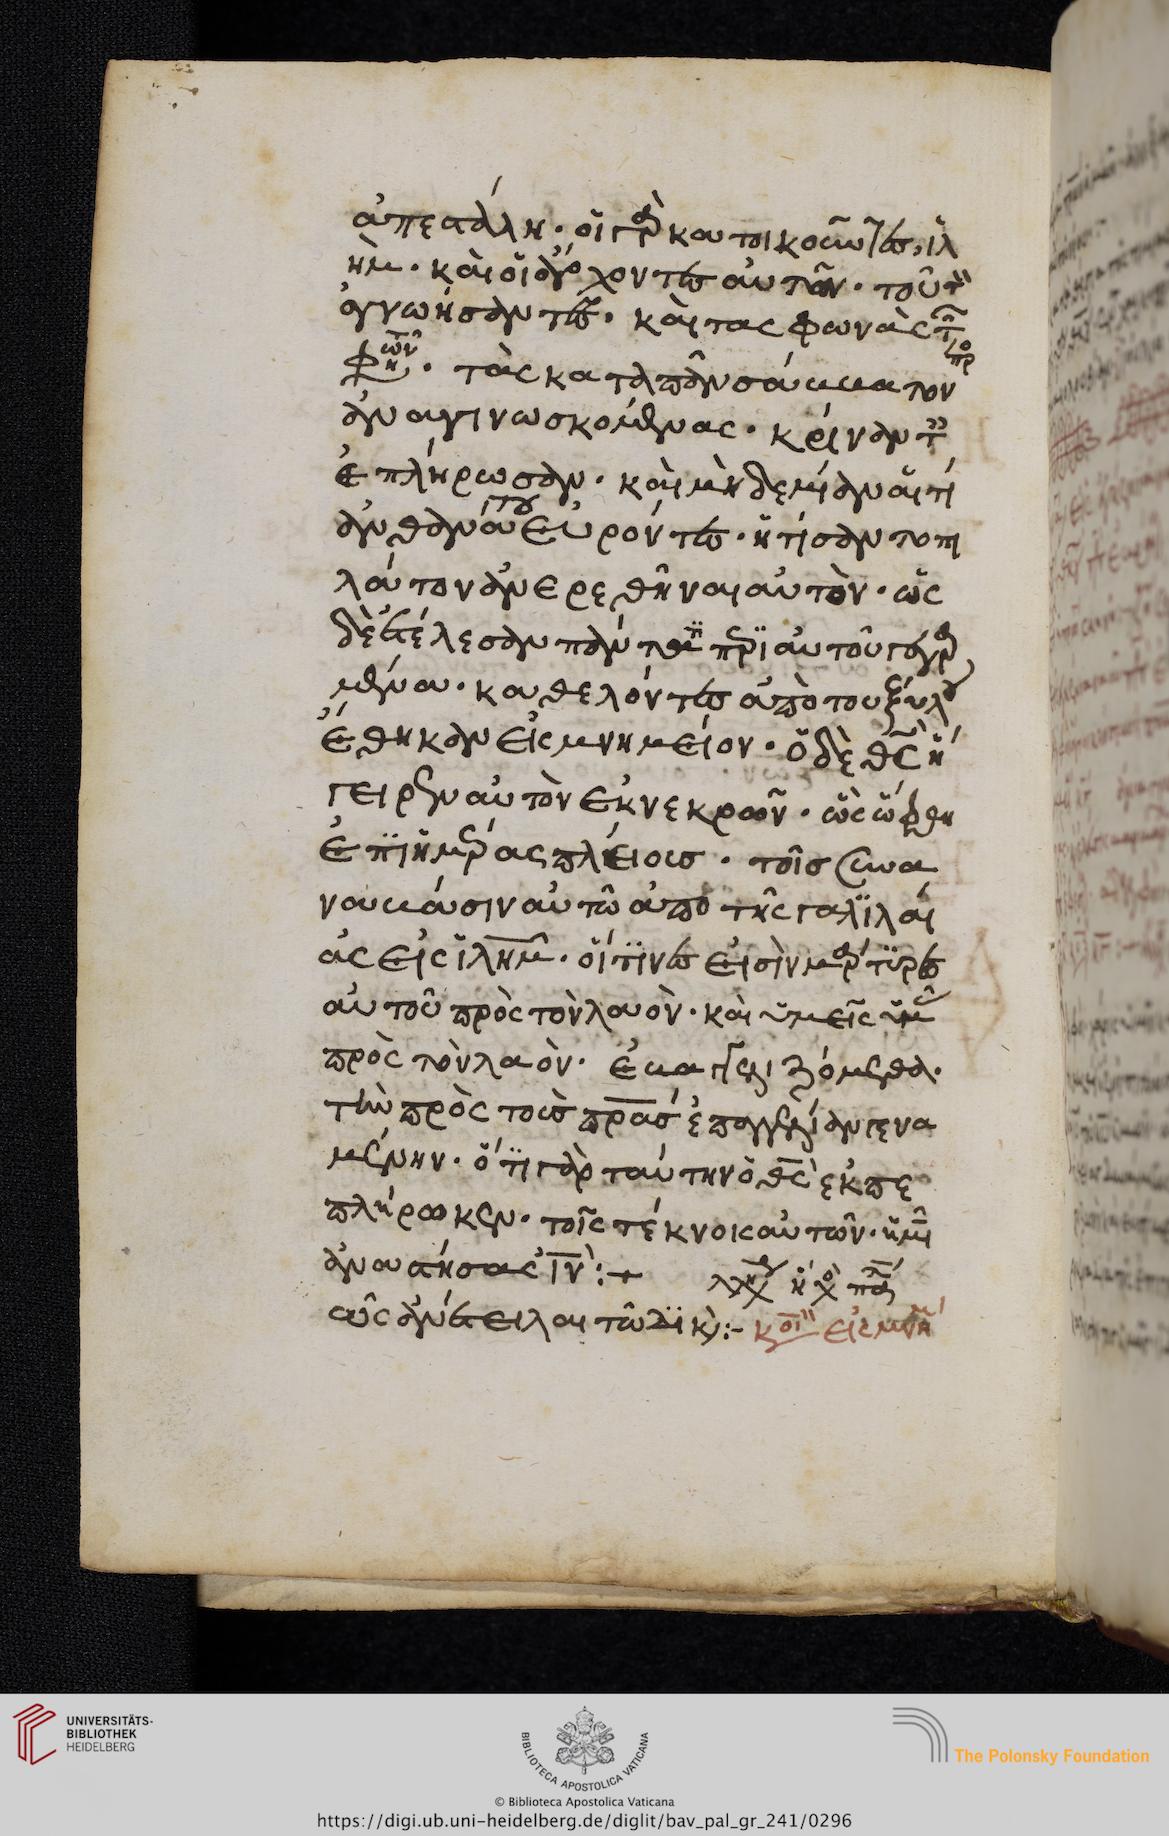 ἀπεστάλη· οἱ γὰρ κατοικοῦντες ἰλ
ημ· καὶ οἱ ἄρχοντες αὐτῶν· τοῦτ
ἀγνωήσαντες· καὶ τὰς φωνὰς τῶν προ
φητῶν· τὰς κατὰ πᾶν σάββατον
ἀναγινωσκομένας· κρίναντ
ἐπλήρωσαν· καὶ μηδεμίαν αἰτί
αν θανάτου εὑρόντες· ᾐτήσαντο πι
λάτον ἀνερεθῆναι αὐτὸν· ὡς
δὲ ἐτέλεσαν πάντα τὰ περὶ αὐτοῦ γεγρα
μένα· καθελόντες ἀπὸ τοῦ ξύλου
ἔθηκαν εἰς μνημεῖον· ὁ δὲ θς ἤ
γειρεν αὐτὸν ἐκ νεκρῶν· ὡς ὤφθη
ἐπὶ ἡμέρας πλείοις· τοῖς συνα
ναβάσιν αὐτῷ ἀπὸ τῆς γαλιλαί
ας εἰς ἰλημ· οἵτινες εἰσὶν μάρτυρες
αὐτοῦ πρὸς τὸν λαὸν· καὶ ὑμεῖς ἡμ
πρὸς τὸν λαὸν· εὐαγγελιζόμεθα·
τὴν πρὸς τοὺς πρας ἐπαγγελίαν γενα
μένην· ὅτι γὰρ ταύτην ὁ θς ἐκπε
πλήρωκεν· τοῖς τέκνοις αὐτῶν· ἡμῖ
ἀναστήσας ιν:+
εἰς μνή
UNIVERSITÄTS-
BIBLIOTHEK
HEIDELBERG
BIBLIOTECA APOSTOLICA VATICANA
The Polonsky Foundation
© Biblioteca Apostolica Vaticana
https://digi.ub.uni-heidelberg.de/diglit/bav_pal_gr_241/0296